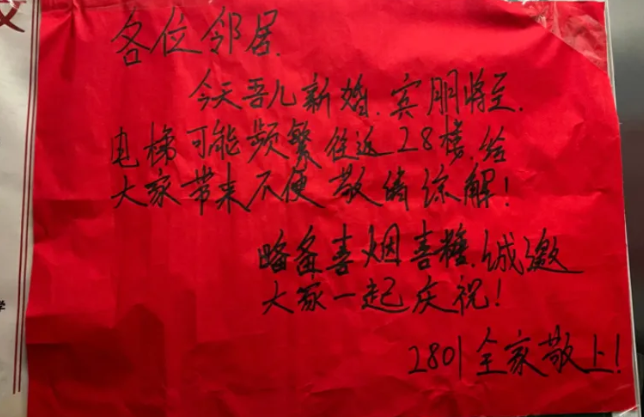 各位邻居.
今天吾儿新婚.宾朋将至.
电梯可能频繁往返28楼.给
大家带来不便敬请谅解!
略备喜烟喜糖.诚邀
大家一起庆祝!
2801全家敬上!